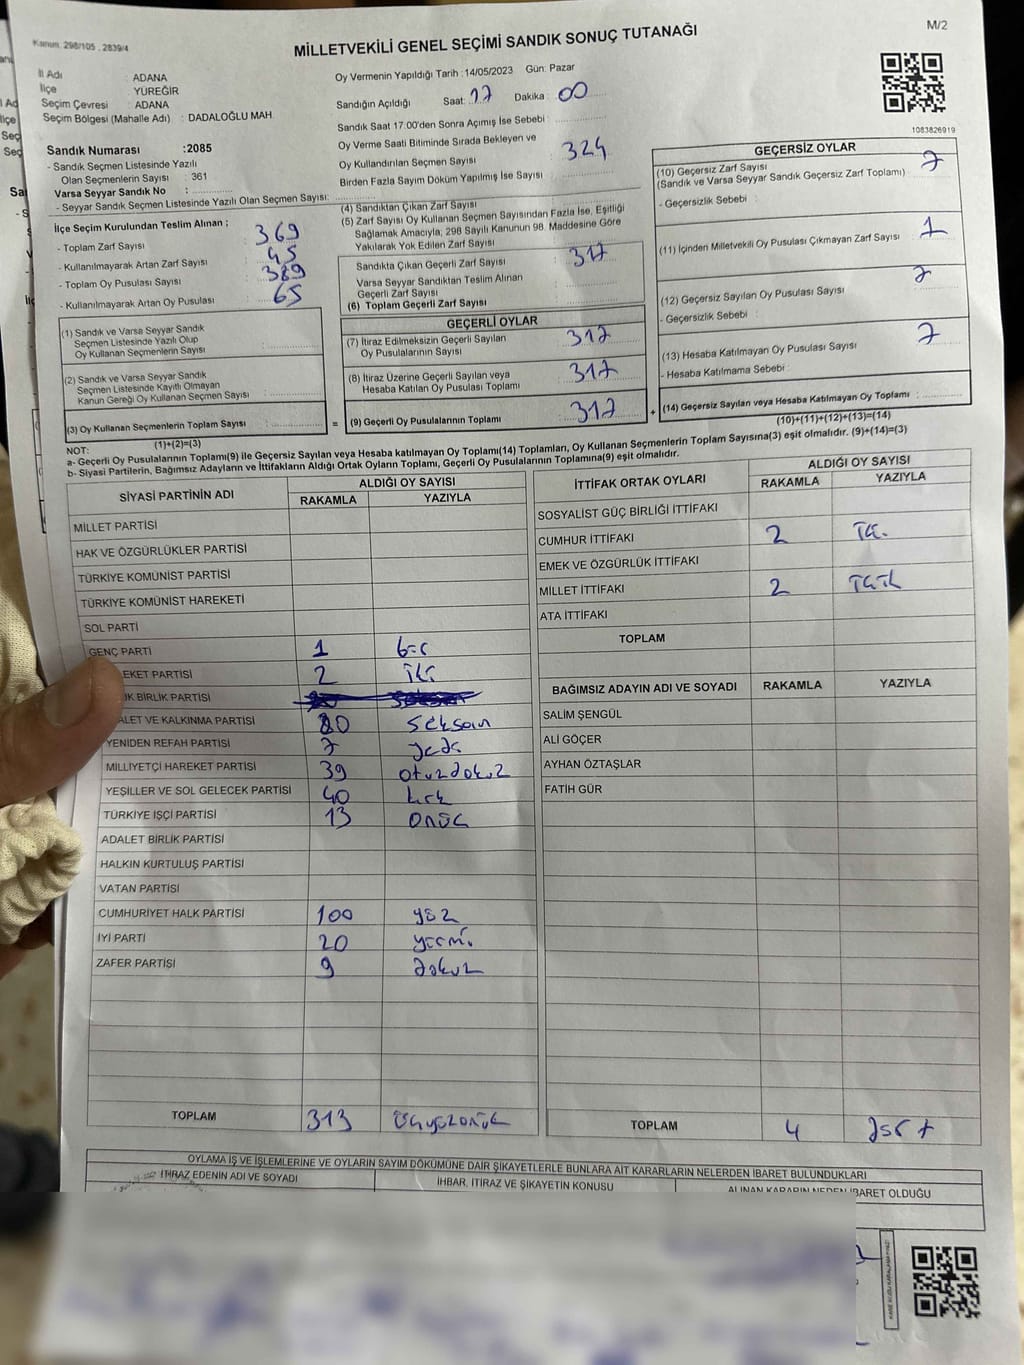 Kanun. 298/105 , 2839/4
MİLLETVEKİLİ GENEL SEÇİMİ SANDIK SONUÇ TUTANAĞI
M/2
İl Adı : ADANA
İlçe : YÜREĞİR
Seçim Çevresi : ADANA
Seçim Bölgesi (Mahalle Adı) : DADALOĞLU MAH
Sandık Numarası :2085
- Sandık Seçmen Listesinde Yazılı
Olan Seçmenlerin Sayısı : 361
Varsa Seyyar Sandık No :
- Seyyar Sandık Seçmen Listesinde Yazılı Olan Seçmen Sayısı:
Oy Vermenin Yapıldığı Tarih :14/05/2023 Gün: Pazar
Sandığın Açıldığı Saat: 17 Dakika : 00
Sandık Saat 17.00'den Sonra Açılmış İse Sebebi :
Oy Verme Saati Bitiminde Sırada Bekleyen ve
Oy Kullandırılan Seçmen Sayısı : 324
Birden Fazla Sayım Döküm Yapılmış İse Sayısı :
1083826919
İlçe Seçim Kurulundan Teslim Alınan ;
- Toplam Zarf Sayısı : 369
- Kullanılmayarak Artan Zarf Sayısı : 45
- Toplam Oy Pusulası Sayısı : 389
- Kullanılmayarak Artan Oy Pusulası : 65
(1) Sandık ve Varsa Seyyar Sandık
Seçmen Listesinde Yazılı Olup
Oy Kullanan Seçmenlerin Sayısı :
(2) Sandık ve Varsa Seyyar Sandık
Seçmen Listesinde Kayıtlı Olmayan
Kanun Gereği Oy Kullanan Seçmen Sayısı :
(3) Oy Kullanan Seçmenlerin Toplam Sayısı :
(1)+(2)=(3)
(4) Sandıktan Çıkan Zarf Sayısı :
(5) Zarf Sayısı Oy Kullanan Seçmen Sayısından Fazla İse, Eşitliği
Sağlamak Amacıyla; 298 Sayılı Kanunun 98. Maddesine Göre
Yakılarak Yok Edilen Zarf Sayısı :
Sandıkta Çıkan Geçerli Zarf Sayısı : 317
Varsa Seyyar Sandıktan Teslim Alınan
Geçerli Zarf Sayısı :
(6) Toplam Geçerli Zarf Sayısı :
GEÇERLİ OYLAR
(7) İtiraz Edilmeksizin Geçerli Sayılan
Oy Pusulalarının Sayısı : 317
(8) İtiraz Üzerine Geçerli Sayılan veya
Hesaba Katılan Oy Pusulası Toplamı : 317
= (9) Geçerli Oy Pusulalarının Toplamı : 317 +
GEÇERSİZ OYLAR
(10) Geçersiz Zarf Sayısı : 7
(Sandık ve Varsa Seyyar Sandık Geçersiz Zarf Toplamı)
- Geçersizlik Sebebi :
(11) İçinden Milletvekili Oy Pusulası Çıkmayan Zarf Sayısı : 1
(12) Geçersiz Sayılan Oy Pusulası Sayısı : 7
- Geçersizlik Sebebi :
(13) Hesaba Katılmayan Oy Pusulası Sayısı : 7
- Hesaba Katılmama Sebebi :
(14) Geçersiz Sayılan veya Hesaba Katılmayan Oy Toplamı :
(10)+(11)+(12)+(13)=(14)
NOT:
a- Geçerli Oy Pusulalarının Toplamı(9) ile Geçersiz Sayılan veya Hesaba katılmayan Oy Toplamı(14) Toplamları, Oy Kullanan Seçmenlerin Toplam Sayısına(3) eşit olmalıdır. (9)+(14)=(3)
b- Siyasi Partilerin, Bağımsız Adayların ve İttifakların Aldığı Ortak Oyların Toplamı, Geçerli Oy Pusulalarının Toplamına(9) eşit olmalıdır.
SİYASİ PARTİNİN ADI ALDIĞI OY SAYISI
RAKAMLA YAZIYLA
MİLLET PARTİSİ
HAK VE ÖZGÜRLÜKLER PARTİSİ
TÜRKİYE KOMÜNİST PARTİSİ
TÜRKİYE KOMÜNİST HAREKETİ
SOL PARTİ
GENÇ PARTİ 1 bir
EKET PARTİSİ 2 İki
IK BİRLİK PARTİSİ
ALET VE KALKINMA PARTİSİ 80 seksan
YENİDEN REFAH PARTİSİ 7 yedi
MİLLİYETÇİ HAREKET PARTİSİ 39 otuzdokuz
YEŞİLLER VE SOL GELECEK PARTİSİ 40 kırk
TÜRKİYE İŞÇİ PARTİSİ 13 onüç
ADALET BİRLİK PARTİSİ
HALKIN KURTULUŞ PARTİSİ
VATAN PARTİSİ
CUMHURİYET HALK PARTİSİ 100 yüz
İYİ PARTİ 20 yirmi
ZAFER PARTİSİ 9 dokuz
TOPLAM 313 üçyüzonüç
İTTİFAK ORTAK OYLARI ALDIĞI OY SAYISI
RAKAMLA YAZIYLA
SOSYALİST GÜÇ BİRLİĞİ İTTİFAKI
CUMHUR İTTİFAKI 2 İki
EMEK VE ÖZGÜRLÜK İTTİFAKI
MİLLET İTTİFAKI 2
ATA İTTİFAKI
TOPLAM
BAĞIMSIZ ADAYIN ADI VE SOYADI RAKAMLA YAZIYLA
SALİM ŞENGÜL
ALİ GÖÇER
AYHAN ÖZTAŞLAR
FATİH GÜR
TOPLAM 4 dört
OYLAMA İŞ VE İŞLEMLERİNE VE OYLARIN SAYIM DÖKÜMÜNE DAİR ŞİKAYETLERLE BUNLARA AİT KARARLARIN NELERDEN İBARET BULUNDUKLARI
İTİRAZ EDENİN ADI VE SOYADI İHBAR, İTİRAZ VE ŞİKAYETİN KONUSU ALINAN KARARIN NEDEN İBARET OLDUĞU